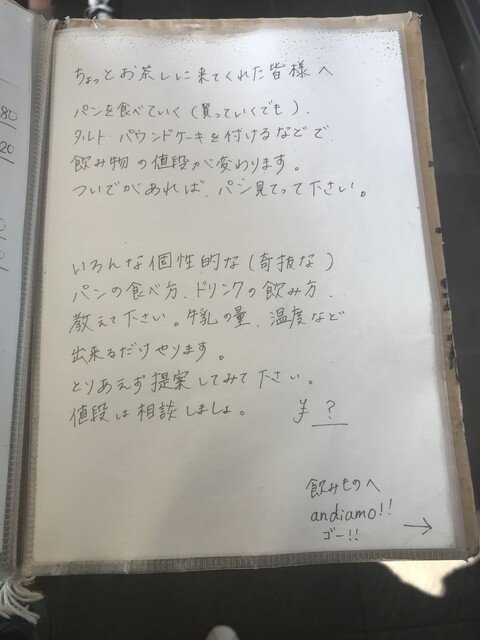 80
20
0
0
ちょっとお茶しに来てくれた皆様へ
パンを食べていく(買っていくでも)、
タルト・パウンドケーキを付けるなどで、
飲み物の値段が変わります。
ついでがあれば、パン見てって下さい。
いろんな個性的な(奇抜な)
パンの食べ方、ドリンクの飲み方、
教えて下さい。牛乳の量、温度など
出来るだけやります。
とりあえず提案してみて下さい。
値段は相談しましょ。 ¥ ?
飲みものへ
andiamo!!
ゴー!! →